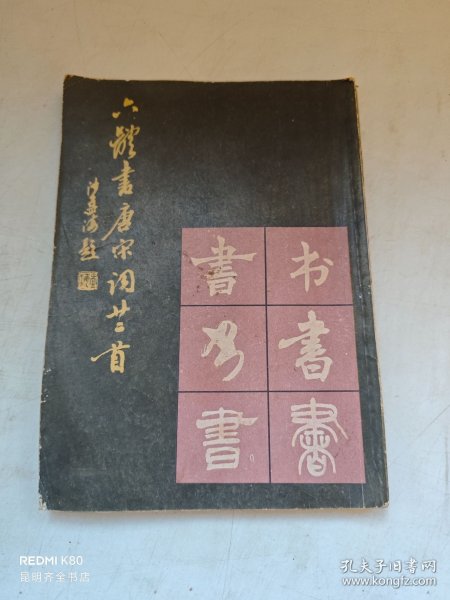 六體書唐宋词廿二首
沙孟海题
書 书
书 書
書 書
REDMI K80
昆明齐全书店
孔夫子旧书网
www.kongfz.com